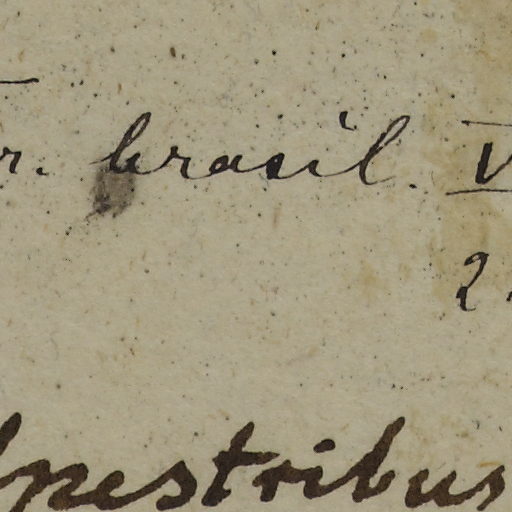 r. brasil. V
2.
lpestribus